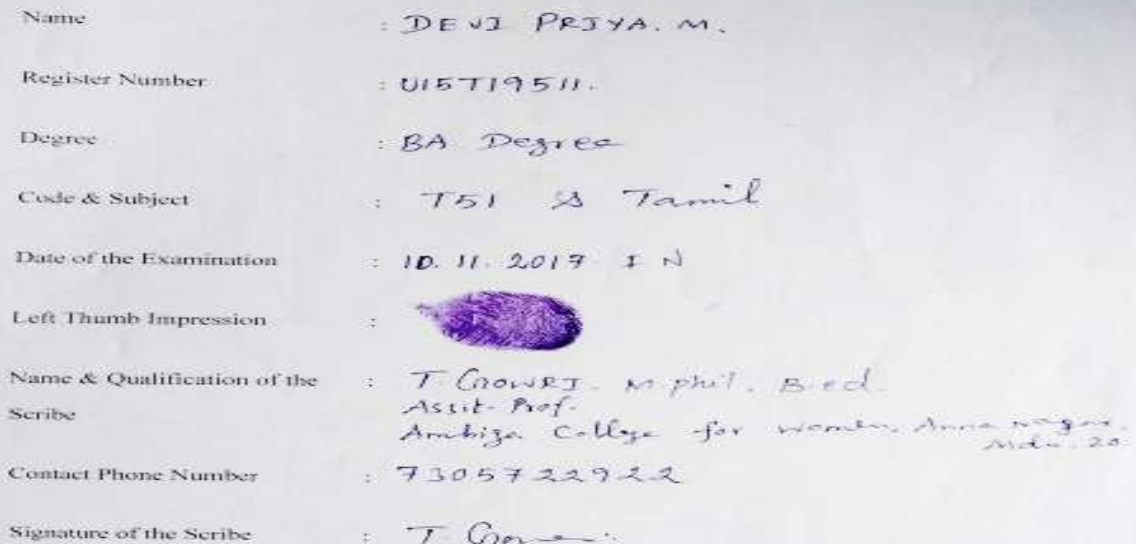 Name : DEVI PRIYA. M.
Register Number : U15T19511.
Degree : BA Degree
Code & Subject : T51 Tamil
Date of the Examination : 10.11.2017 I N
Left Thumb Impression :
Name & Qualification of the : T. GOWRI. M.phil. B.ed.
Scribe Assit. Prof.
Ambiga College for women, Anna nagar.
Mdu. 20
Contact Phone Number : 7305722922
Signature of the Scribe : T.